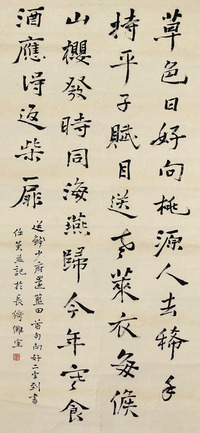 草色日好向桃源人去稀手
持平子賦目送老萊衣每候
山櫻發時同海燕歸今年寒食
酒應得返柴扉
送錢少府還藍田首句向好二字到書
任記於長室